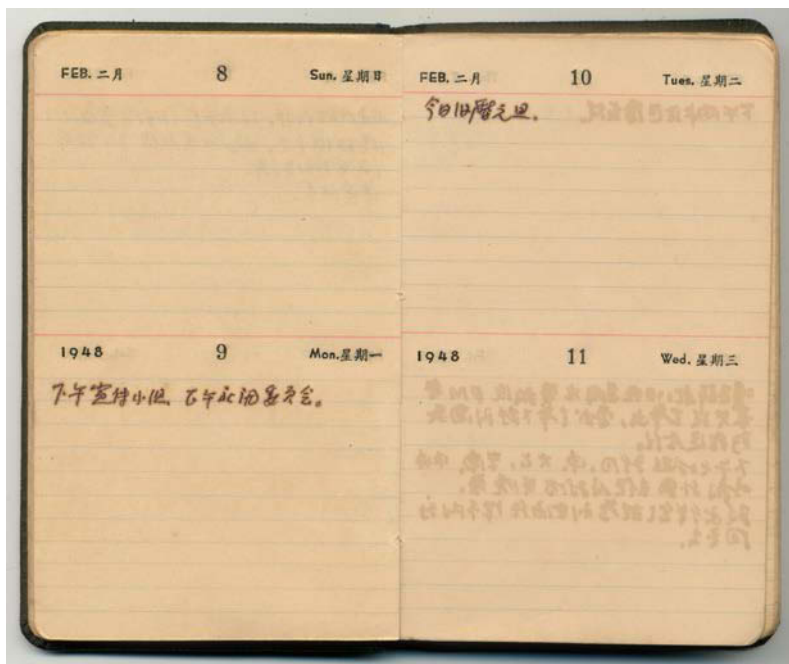 FEB. 二月 8 Sun. 星期日
1948 9 Mon. 星期一
下午宣传小组、下午 委员会。
FEB. 二月 10 Tues. 星期二
今日旧历元旦.
1948 11 Wed. 星期三